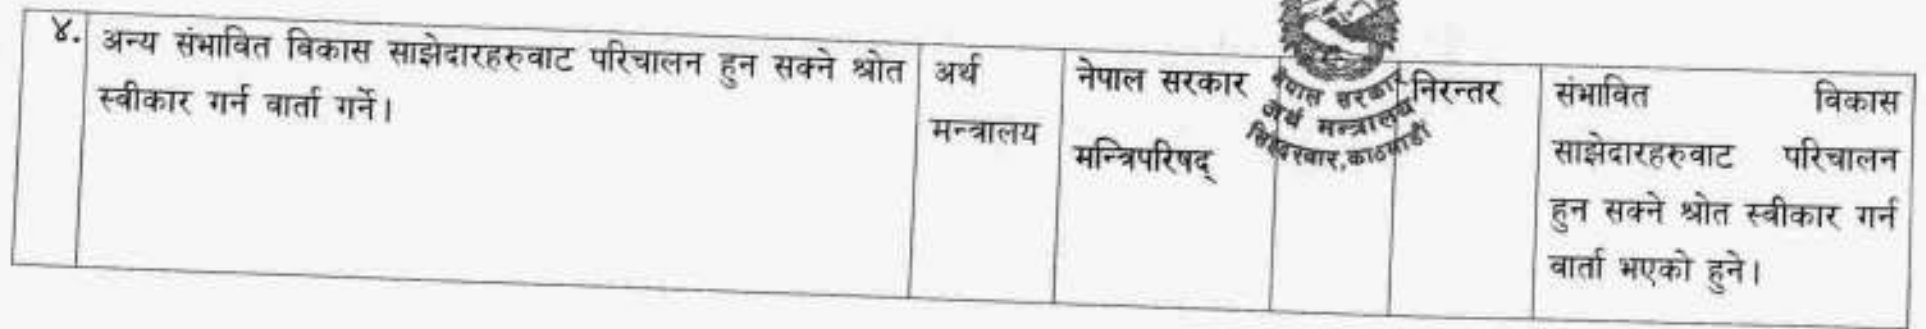 ४. अन्य संभावित विकास साझेदारहरुवाट परिचालन हुन सक्ने श्रोत
स्वीकार गर्न वार्ता गर्ने।
अर्थ
मन्त्रालय
नेपाल सरकार
मन्त्रिपरिषद्
नेपाल सरकार
अर्थ मन्त्रालय
सिंहदरवार, काठमाडौं
निरन्तर
संभावित विकास
साझेदारहरुवाट परिचालन
हुन सक्ने श्रोत स्वीकार गर्न
वार्ता भएको हुने।